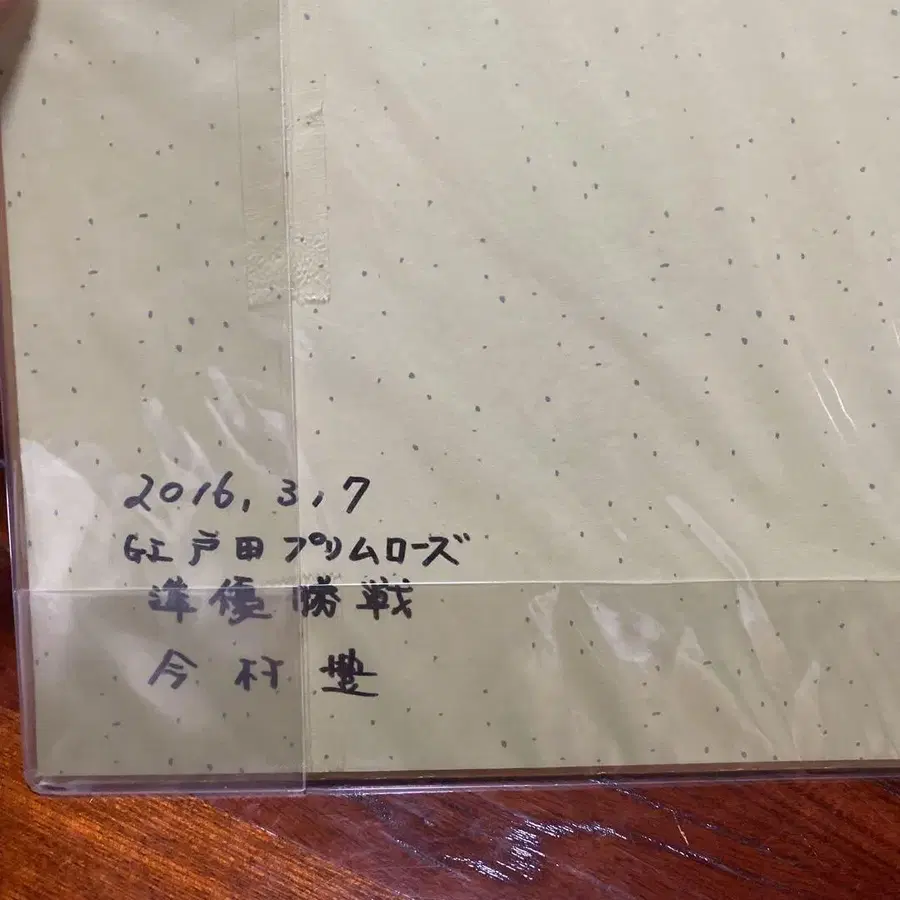 2016,3,7
GI戸田プリムローズ
準優勝戦
今村豊